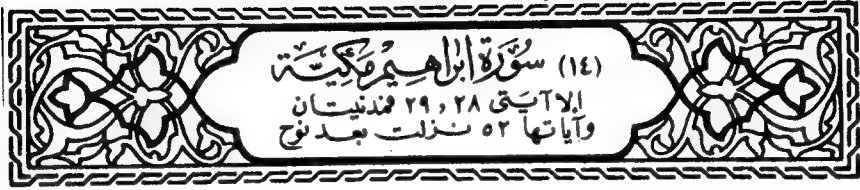 (١٤) سُوْرَة ابْرَاهِيمُ مَكِيَّتَة
الا آيَتَى ٢٨ و ٢٩ فمدنيتان
وآياتها ٥٢ نزلت بعد نوح